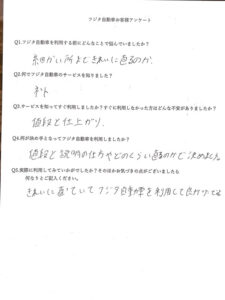 フジタ自動車お客様アンケート
Q1.フジタ自動車を利用する前にどんなことで悩んでいましたか？
細かい所まできれいに直るのか。
Q2.何でフジタ自動車のサービスを知りましたか？
ネット
Q3.サービスを知ってすぐ利用しましたか？すぐに利用しなかった方はどんな不安がありましたか？
値段と仕上がり。
Q4.何が決め手となってフジタ自動車を利用しましたか？
値段と説明の仕方やどのくらい直るのかで決めました。
Q5.実際に利用してみていかがでしたか？そのほかお気づきの点がございましたら
何なりとご記入ください。
きれいに直っていてフジタ自動車を利用して良かったです